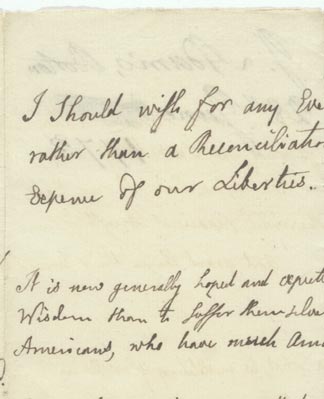 I Should wish for any Eve
rather than a Reconciliatio
Expence of our Liberties.
It is now generally hoped and expect
Wisdom than to Suffer themselve
Americans, who have much Am